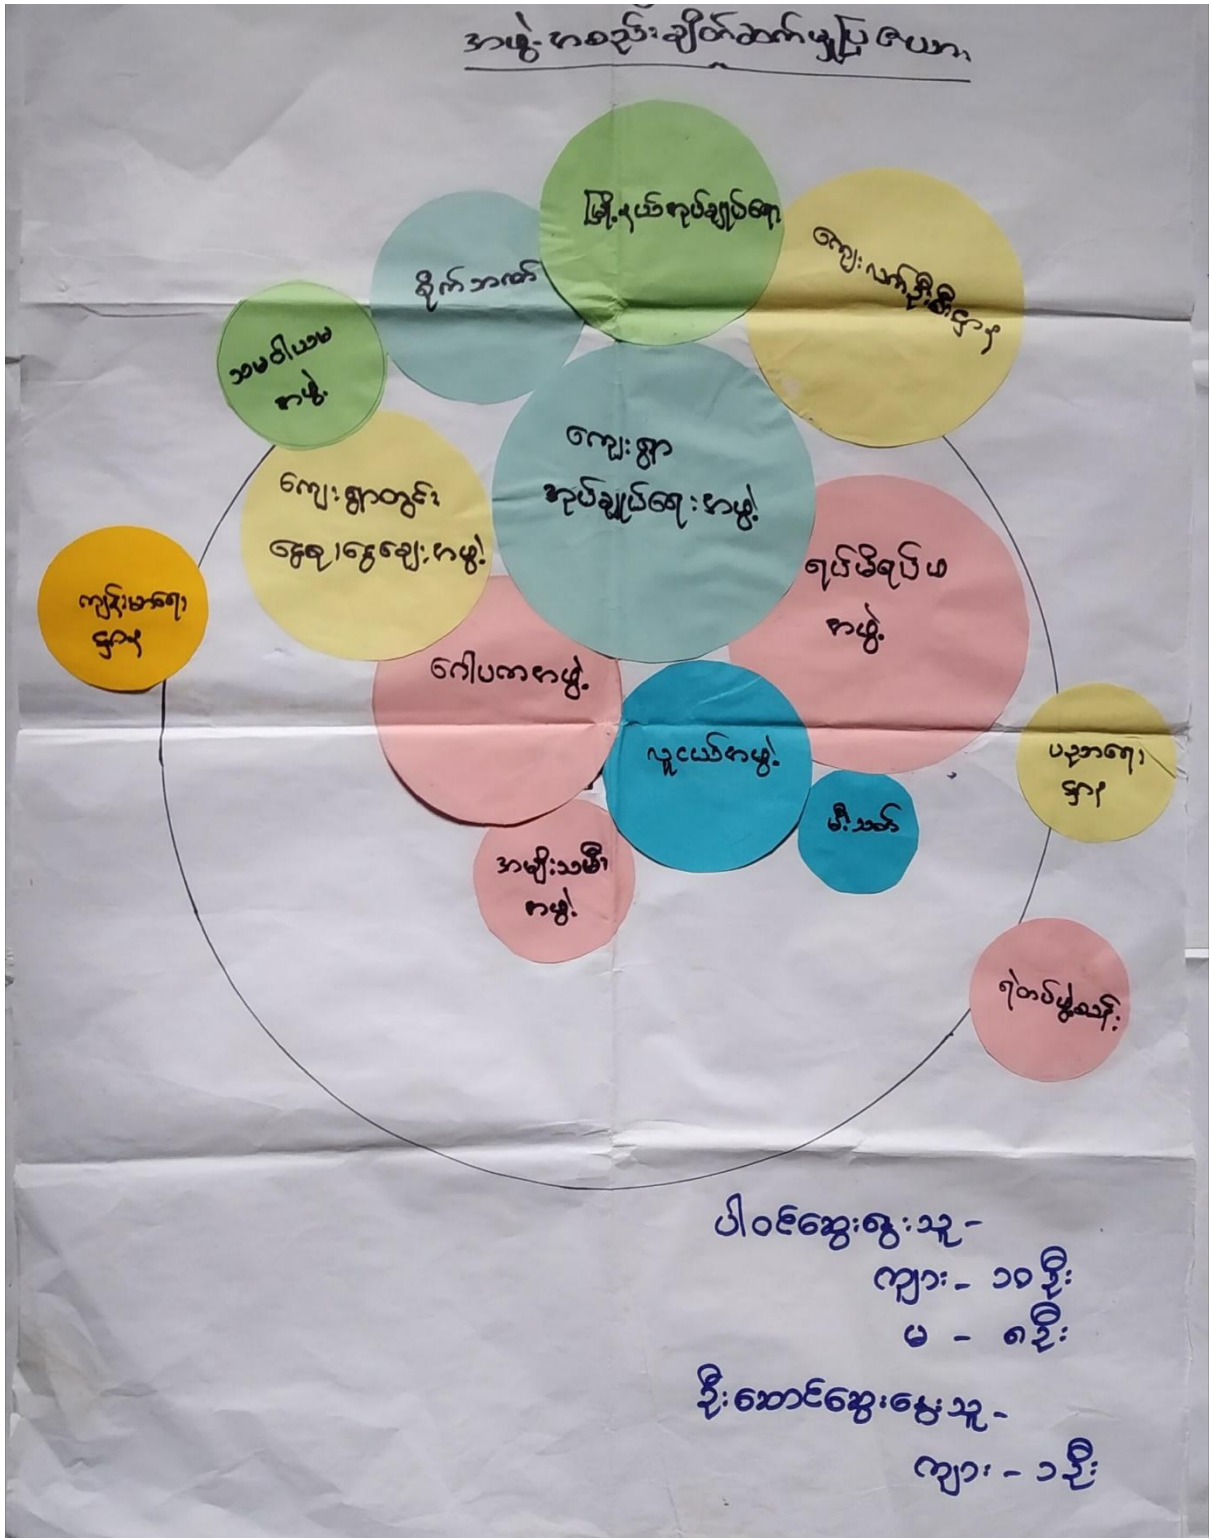 အဖွဲ့အစည်းချိတ်ဆက်မှုပြဇယား
မြို့နယ်အုပ်ချုပ်ရေး
စိုက်ဘဏ်
ကျေးလက်ဦးစီးဌာန
သမဝါယမ
အဖွဲ့
ကျေးရွာ
အုပ်ချုပ်ရေးအဖွဲ့
ကျေးရွာတွင်း
ငွေစု၊ငွေချေးအဖွဲ့
ရပ်မိရပ်ဖ
အဖွဲ့
ကျန်းမာရေး
ဌာန
ဂေါပကအဖွဲ့
လူငယ်အဖွဲ့
ပညာရေး
ဌာန
မီးသတ်
အမျိုးသမီး
အဖွဲ့
ရဲတပ်ဖွဲ့စခန်း
ပါဝင်ဆွေးနွေးသူ-
ကျား - ၁၀ဦး
မ - ၈ဦး
ဦးဆောင်ဆွေးနွေးသူ-
ကျား - ၁ဦး